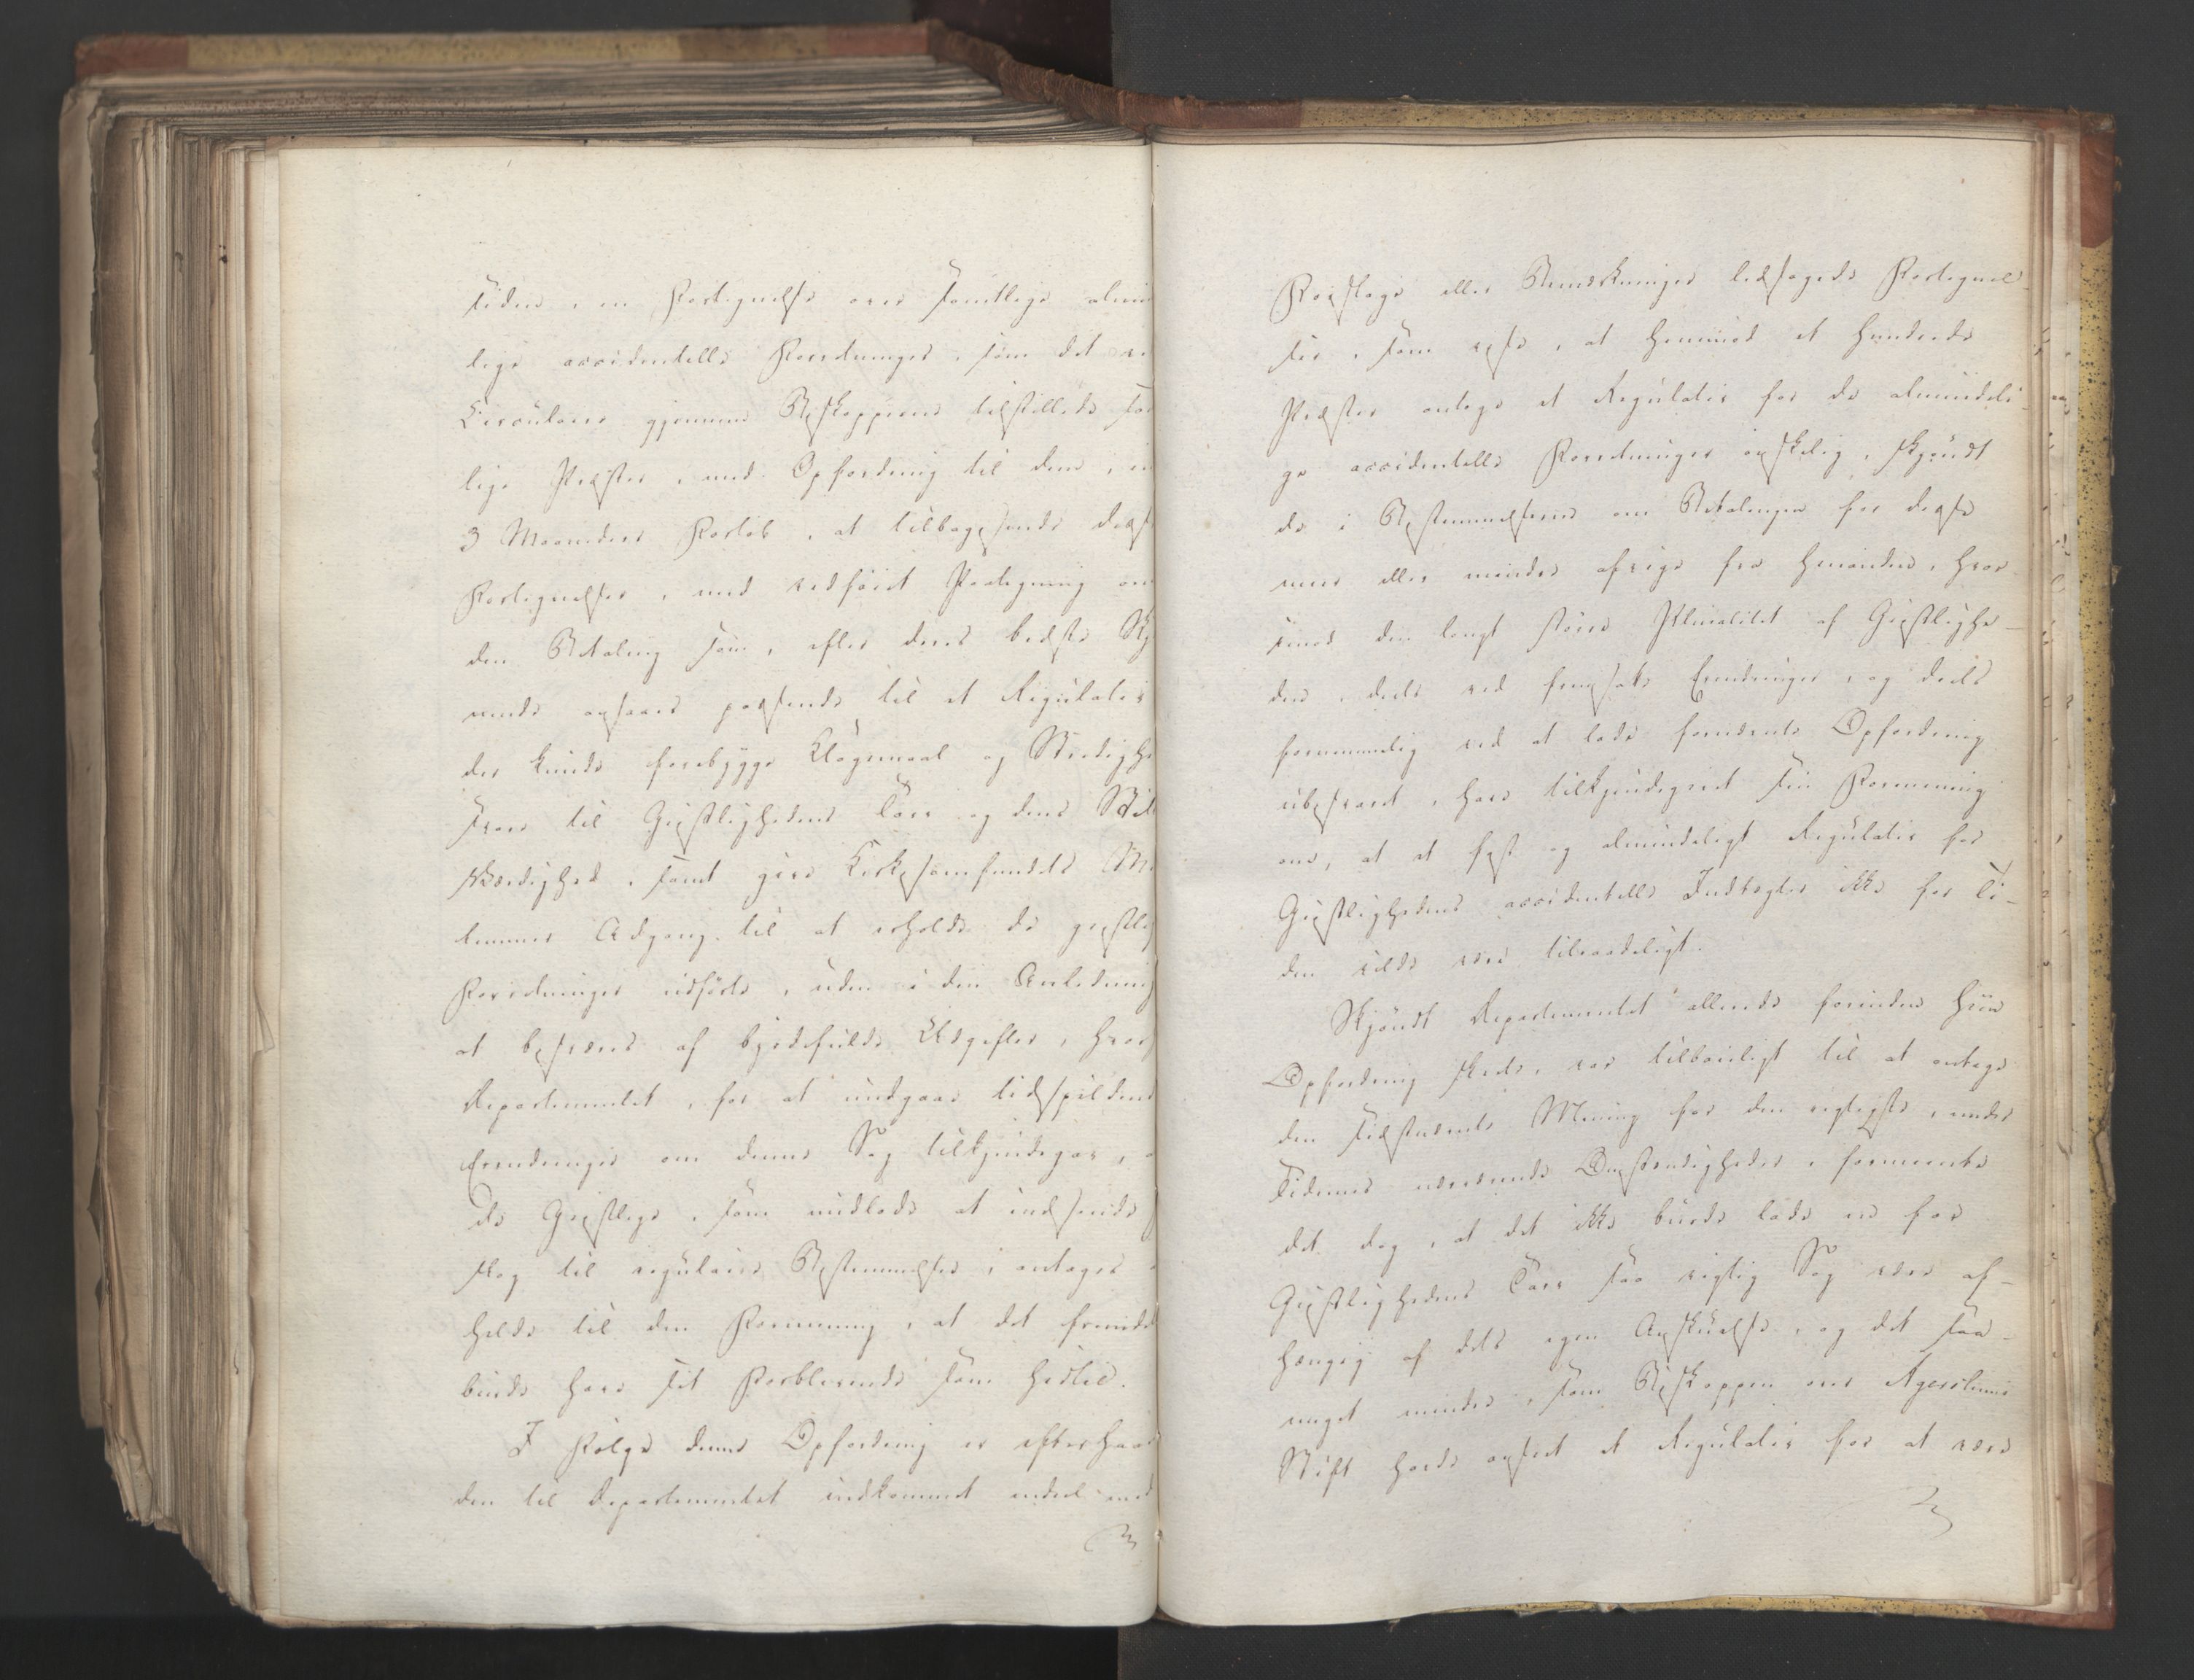 siden, en Fortegnelse over samtlige almin
lige accidentelle Forretninger, som det ve
Circulaire gjennem Biskopperne tilstillede sam
lige Præster, med Opfordring til dem, in
3 Maaneders Forløb, at tilbagesende disse
Fortegnelser, med vedføiet Paategning om
den Betaling som, efter deres bedste Skj
nende ansaaes passende til et Regulativ
der kunde forebygge Klagemaal og Stridighe
svare til Geistlighedens Tarv og dens Stil
Værdighed, samt give Kirkesamfundets Me
lemmer Adgang til at erholde de geistlig
Forretninger udførte, uden i den Anledning
at besværes af byrdefulde Udgifter, hvor
Departementet, for at undgaae tidsspildend
Erindringer om denne Sag tilkjendegav, a
de Geistlige, som undlode at indsende
slag til regulaire Bestemmelser, antages
holde til den Formening, at det fremde
burde have sit Forblivende som hidtil.
I Følge denne Opfordring er efterhaan
den til Departementet indkommet endeel med
Forslage eller Bemærkninger ledsagede Fortegnel
ser, som vise, at henimod et hundrede
Præster antage et Regulativ for de almindeli-
ge accidentelle Forretninger ønskelig, skjøndt
de i Bestemmelserne om Betalingen for disse
meer eller mindre afvige fra hinanden, hvor-
imod den langt større Pluralitet af Geistlighe-
den, deels ved fremsatte Erindringer, og deels
fornemmelig ved at lade fornævnte Opfordring
ubesvaret, have tilkjendegivet sin Formening
om, at et fast og almindeligt Regulativ for
Geistlighedens accidentelle Indtægter ikke for Ti-
den vilde være tilraadeligt.
Skjøndt Departementet allerede forinden hiin
Opfordring skede, var tilbøieligt til at antage
den sidstnævnte Mening for den rigtigste, under
Tidernes nærværende Omstændigheder, formeente
det dog, at det ikke burde lade en for
Geistlighedens Tarv saa vigtig Sag være af-
hængig af dets egen Anskuelse, og det saa-
meget mindre, som Biskoppen over Agershuus
Stift havde anseet et Regulativ for at være